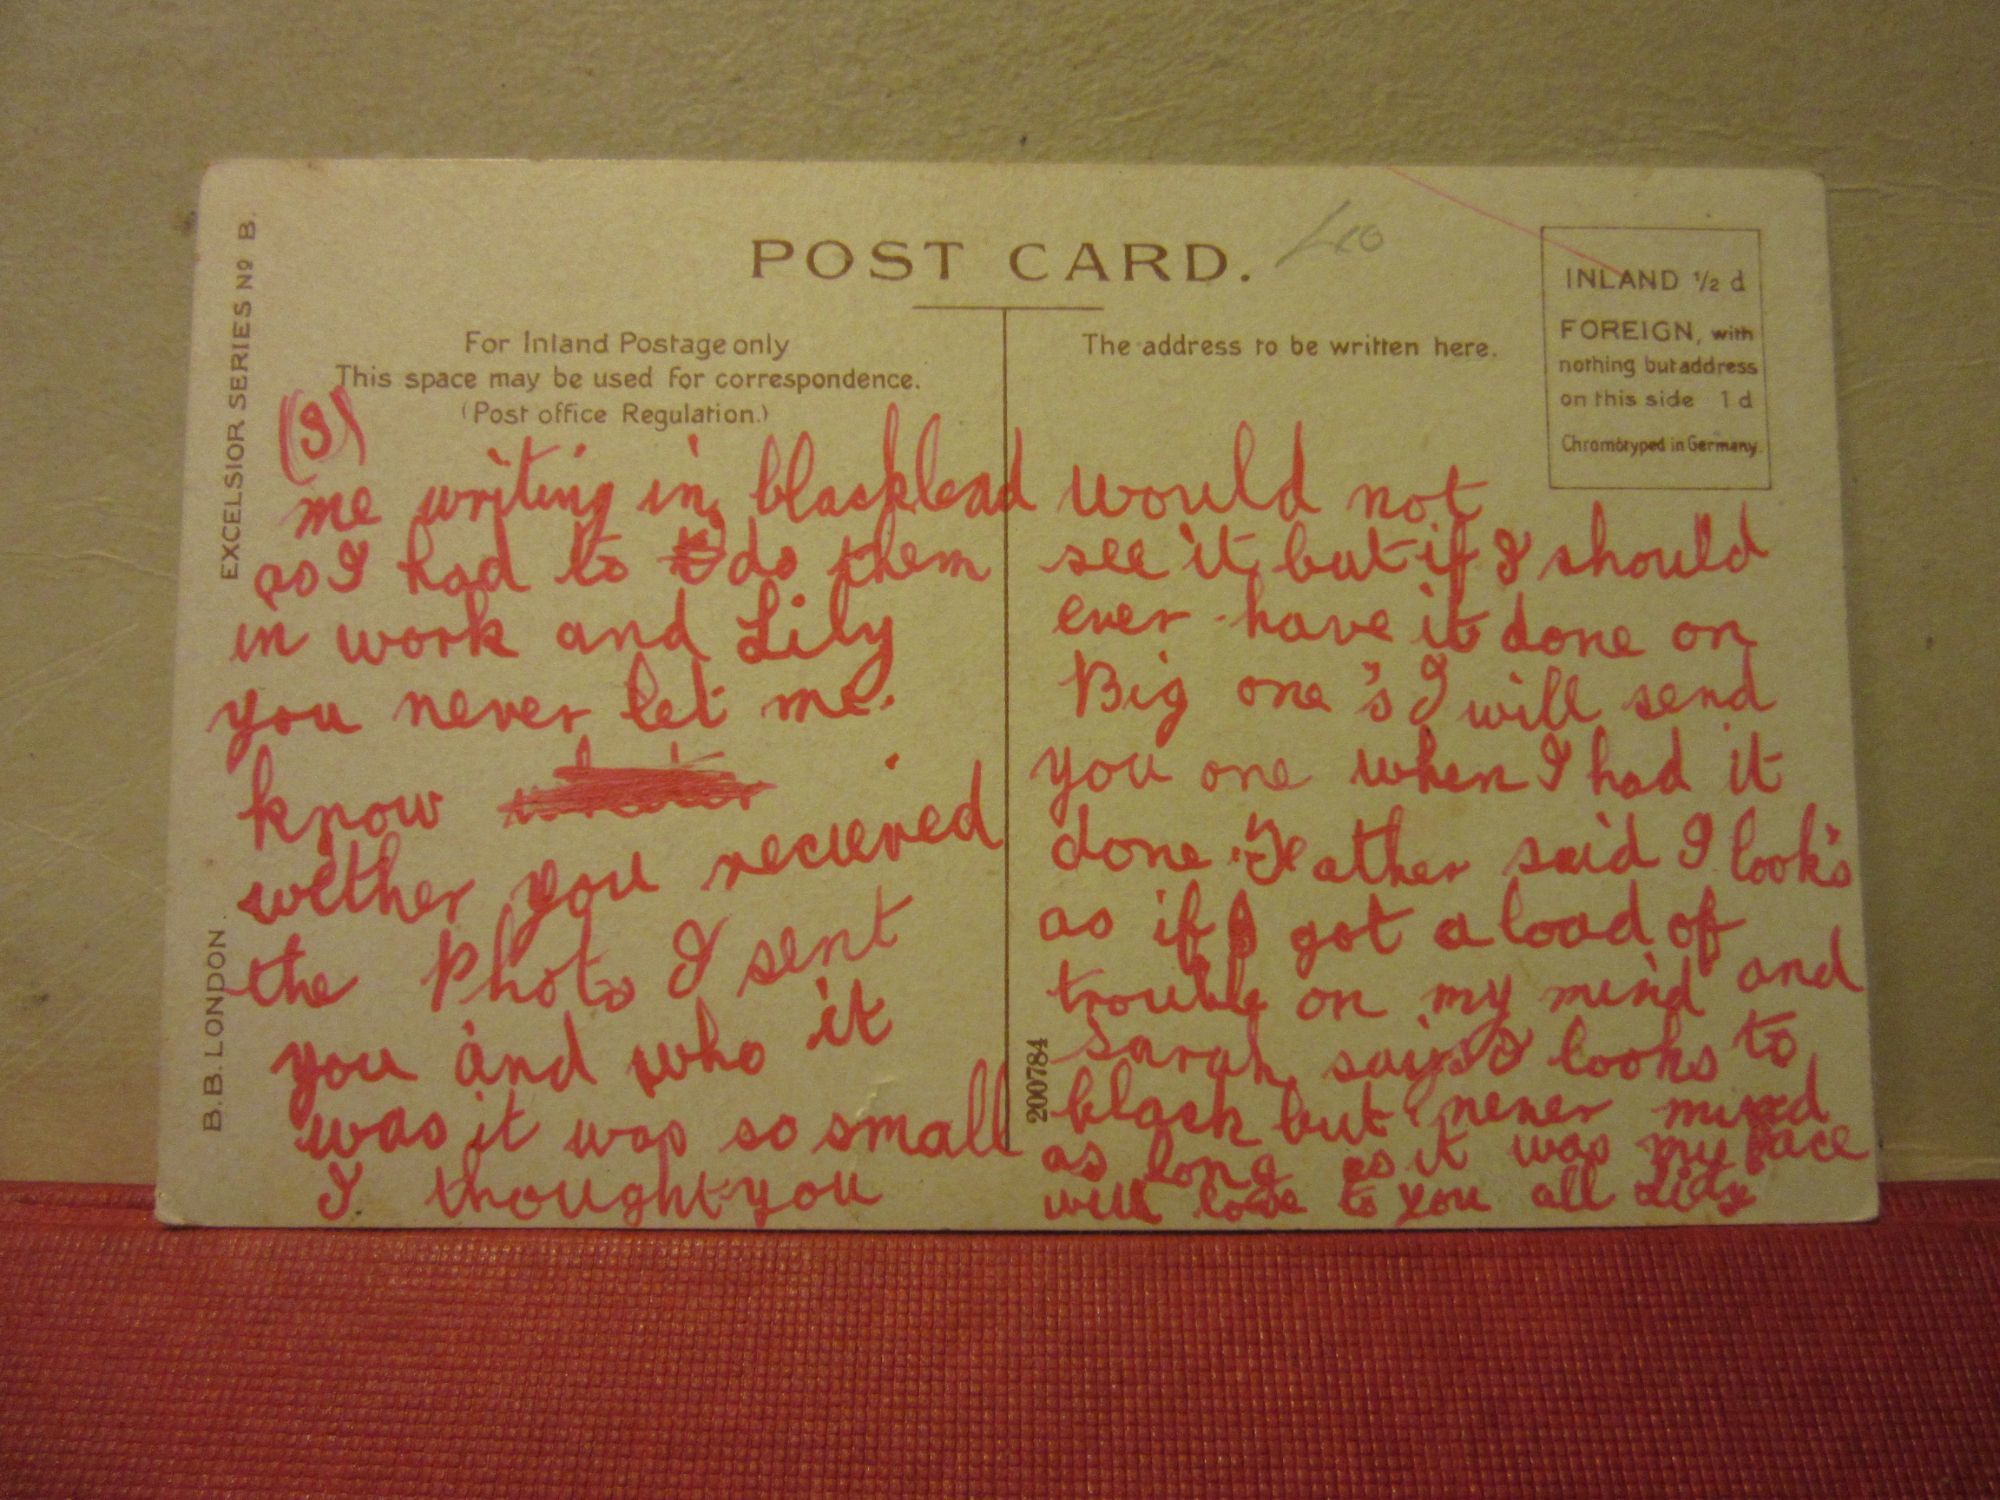 POST CARD.
EXCELSIOR SERIES Nº B.
B.B. LONDON
For Inland Postage only
This space may be used for correspondence.
(Post office Regulation.)
The address to be written here.
INLAND ½ d
FOREIGN, with
nothing but address
on this side 1 d
Chromotyped in Germany.
200784
(3)
me writing in blacklead
as I had to do them
in work and Lily
you never let me.
know
wether you recieved
the Photo I sent
you and who it
was it was so small
I thought you
would not
see it but if I should
ever have it done on
Big one's I will send
you one when I had it
done. Father said I look's
as if I got a load of
trouble on my mind and
Sarah says I looks to
black but never mind
as long as it was my face
will love to you all